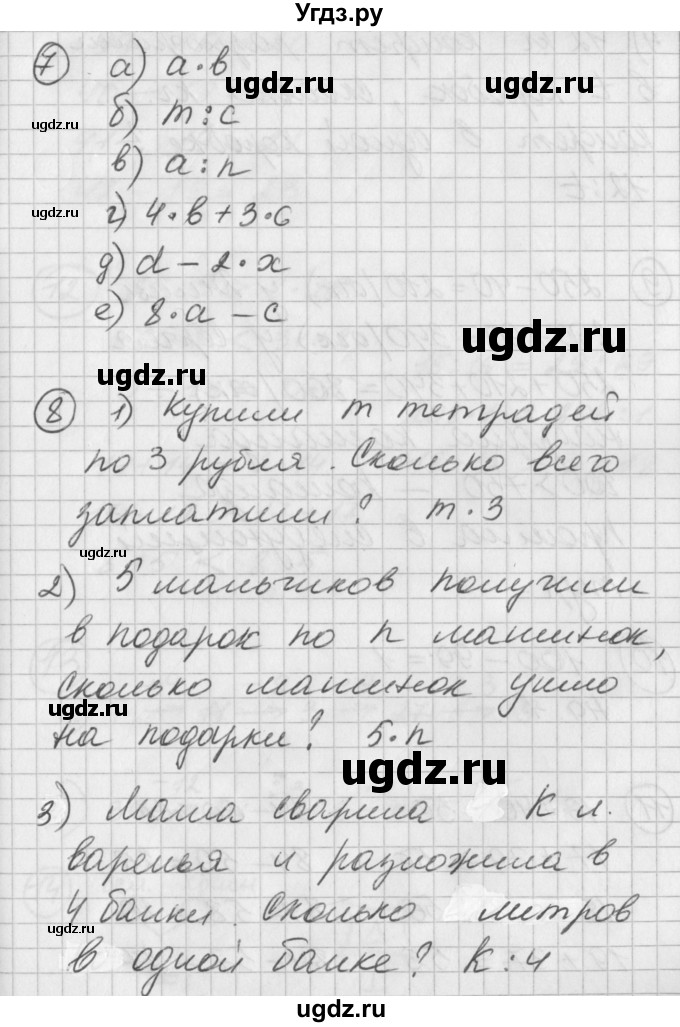 Угдз.ру
7 а) а·в
ugdz.ru ugdz.ru
б) m:с
ugdz.ru
в) а:n
ugdz.ru
г) 4·в+3·6
д) d-2·x
е) 8·а-с
ugdz.ru
ugdz.ru
8 1) Купили m тетрадей
по 3 рубля. Сколько всего
заплатили? m·3
ugdz.ru
ugdz.ru
2) 5 мальчиков получили
в подарок по n машинок,
сколько машинок ушло
ugdz.ru
на подарки? 5·n
ugdz.ru
3) Маша сварила К л.
варенья и разложила в
4 банки. Сколько литров
ugdz.ru
в одной банке? К:4
ugdz.ru